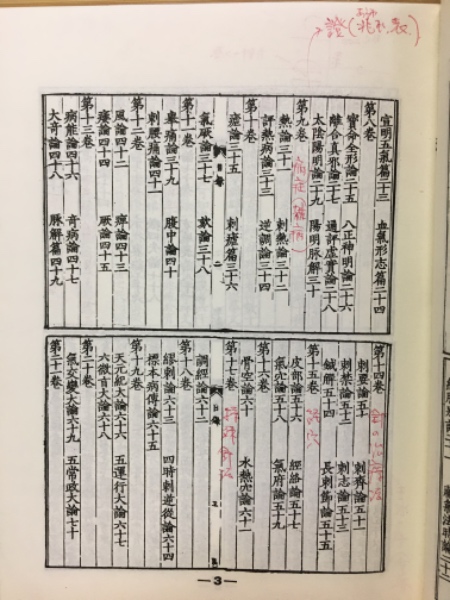 證(
宣明五氣篇二十三　血氣形志篇二十四
第八卷
寶命全形論二十五　八正神明論二十六
離合真邪論二十七　通評虛實論二十八
太陰陽明論二十九　陽明脈解三十
第九卷
病症(雜病)
熱論三十一　刺熱論三十二
評熱病論三十三　逆調論三十四
第十卷
瘧論三十五　刺瘧篇三十六
目錄　二
氣厥論三十七　欬論三十八
第十一卷
舉痛論三十九　腹中論四十
刺腰痛論四十一
第十二卷
風論四十二　痺論四十三
痿論四十四　厥論四十五
第十三卷
病能論四十六　奇病論四十七
大奇論四十八　脈解篇四十九
第十四卷
針の治療法
刺要論五十　刺齊論五十一
刺禁論五十二　刺志論五十三
鍼解五十四　長刺節論五十五
第十五卷
皮部論五十六　經絡論五十七
氣穴論五十八　氣府論五十九
第十六卷
骨空論六十　水熱穴論六十一
第十七卷
調經論六十二
目錄
第十八卷
繆刺論六十三　四時刺逆從論六十四
標本病傳論六十五
第十九卷
天元紀大論六十六　五運行大論六十七
六微旨大論六十八
第二十卷
氣交變大論六十九　五常政大論七十
第二十一卷
—3—